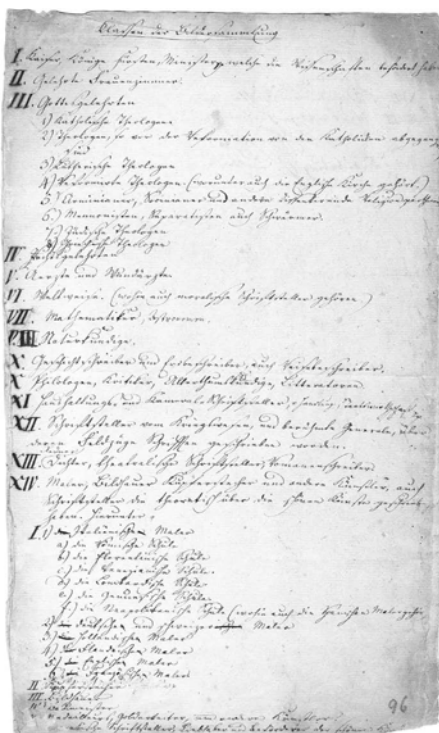 Classen der Bildersammlung
I. Kaiser, Könige Fürsten, Minister, welche die Wissenschaften befördert haben
II. Gelehrte Frauenzimmer.
III. Gottesgelehrten
1) Katholische Theologen
2) Theologen, so vor der Reformation von den Katholicken abgegangen
sind
3) Lutherische Theologen
4) Reformirte Theologen. (worunter auch die Englische Kirche gehört.)
5) Arminianer, Socinianer und andere dissentirende
6) Mennonisten, Separatisten auch Schwärmer.
7) Jüdische Theologen
8) Theologen
IV. Rechtsgelehrten
V. Aerzte und Wundärzte
VI. Weltweise. (wohin auch moralische Schriftsteller gehören)
VII. Mathematiker, Astronomen.
VIII Naturkündige.
X. Geschichtschreiber und Erdbeschreiber, auch Reisebeschreiber.
X Philologen, Kritiker, Alterthumskündige, Litteratoren
XI Haushaltungs, und Kameral Schriftsteller,
XII. Schriftsteller vom Kriegswesen, und berühmte Generale, über
deren Feldzüge Schriften geschrieben worden.
XIII. Dichter, theatralische Schriftsteller, Romanenschreiber
XIV. Maler, Bildhauer Kupferstecher und andere Künstler, auch
Schriftsteller die theoretisch über die schönen Künste geschrieben
haben. hierunter,
I. 1) Italienischen Maler
a) die Römische Schule
b) die Florentinische Schule
c) die Venezianische Schule.
d) die Lombardische Schule
e) die Genuesische Schule
f) die Neapolitanische Schule (wohin auch die Spanischen Maler gehören
2) deutschen und schweizer Maler
3) Holländischen Maler
4) Flandrischen Maler
5) Englischen Maler
6) Französischen Maler
II. Kupferstecher
III. Bildhauer
IV. Baumeister
V. Medailleurs, Goldarbeiter, und andere Künstler
Schriftsteller, Liebhaber und Beförderer der schönen
96